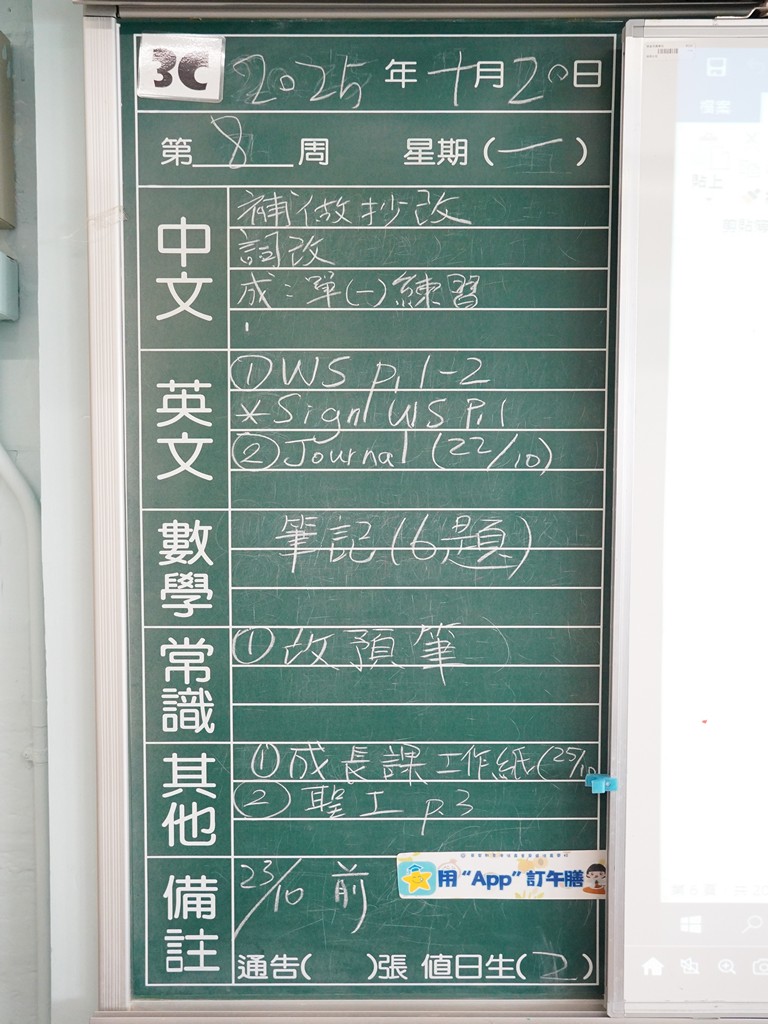 3C 2025年十月20日
第8周 星期(一)
中文
補做抄改
詞改
成:單(一)練習
英文
①WS p.1-2
*Sign WS P.1
②Journal (22/10)
數學
筆記(6題)
常識
①改預筆
其他
①成長課工作紙(25/10
②聖工 p.3
備註
23/10 前
用“App”訂午膳
通告( )張 值日生(2)
檔案
貼上